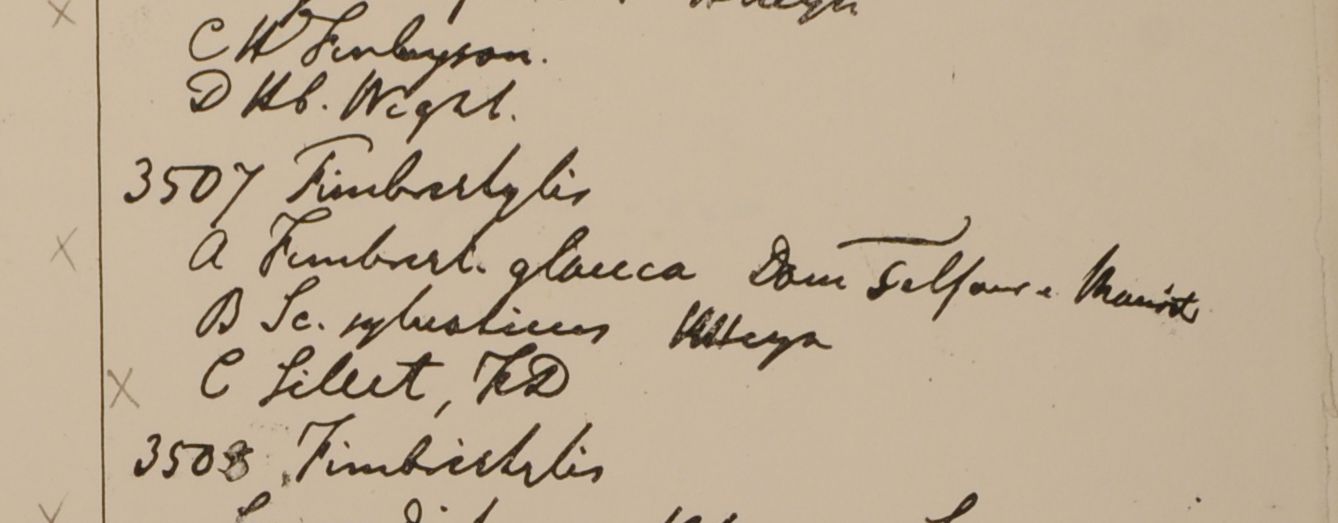 C H Finlayson.
D Hb. Wight.
3507 Fimbristylis
A Fimbrist. glauca Dom Telfair. Maurit
B Sc. sylvaticus HHeyn
C Sillet, FD
3508 Fimbristylis